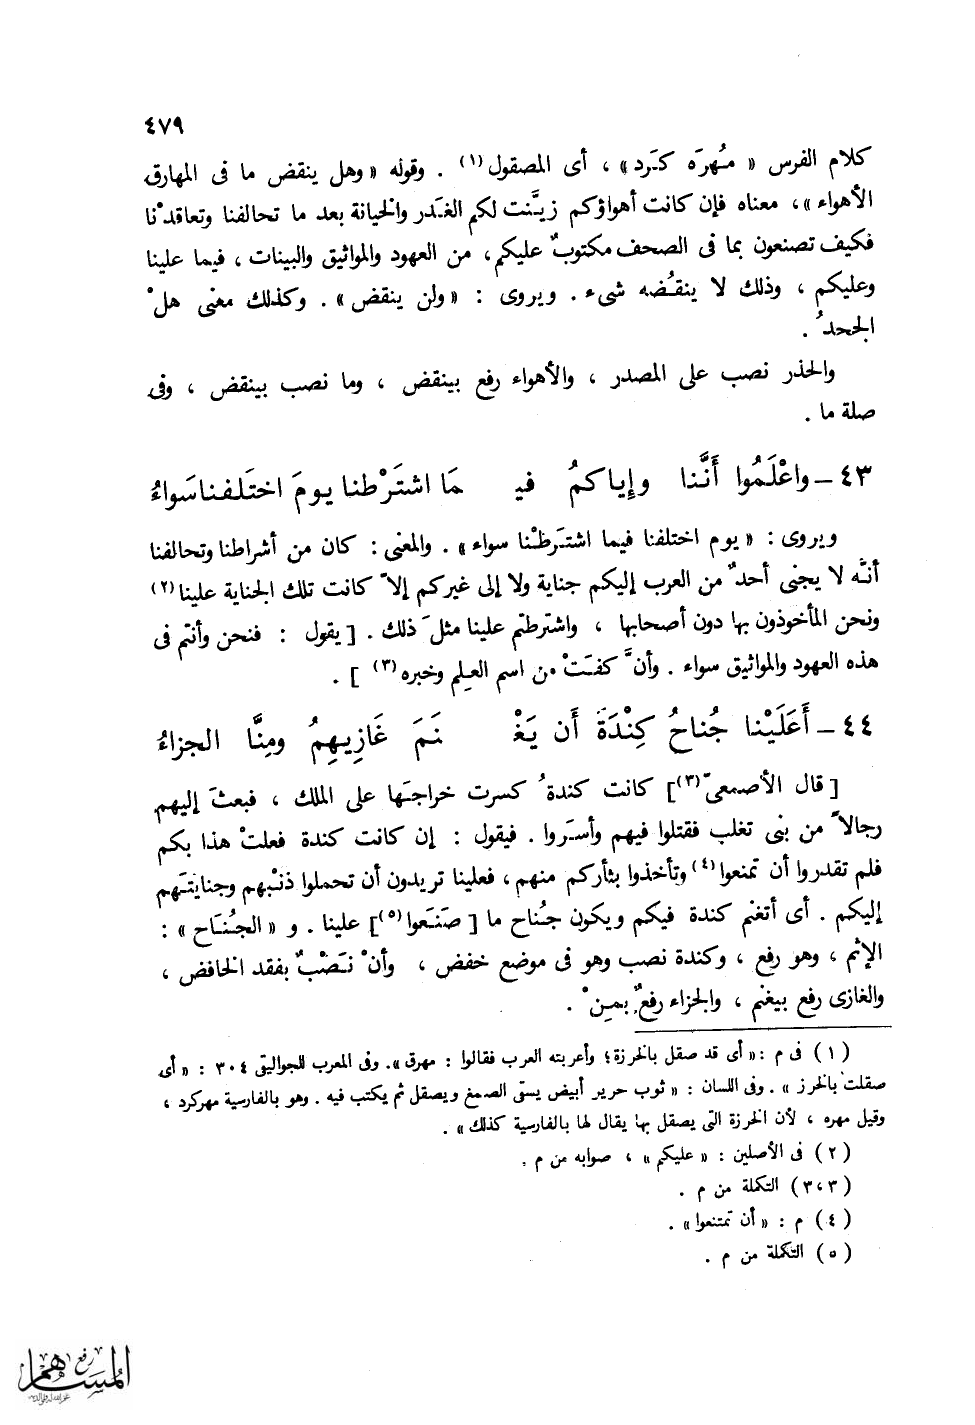 ٤٧٩
كلام الفرس « مُهرَه كَرد» ، أى المصقول(١) . وقوله « وهل ينقض ما فى المهارق
الأهواء »، معناه فإن كانت أهواؤكم زيَّنت لكم الغَدر والخيانة بعد ما تحالفنا وتعاقدْنا
فكيف تصنعون بما فى الصحف مكتوبٌ عليكم، من العهود والمواثيق والبينات ، فيما علينا
وعليكم ، وذلك لا ينقُضه شىء . ويروى : «ولن ينقض» . وكذلك معنى هلْ
الجحدُ .
والحذر نصب على المصدر ، والأهواء رفع بينقض ، وما نصب بينقض ، وفى
صلة ما .
٤٣ – واعْلَمُوا أَنَّنا وإِياكمُ فيـ مَا اشتَرْطنا يومَ اختَلفناسَواءُ
ويروى : « يوم اختلفنا فيما اشتَرطْنا سواء » . والمعنى : كان من أشراطنا وتحالفنا
أنَّه لا يجنى أحدٌ من العرب إليكم جناية ولا إلى غيركم إلاّ كانت تلك الجناية علينا(٢)
ونحن المأخوذون بها دون أصحابها ، واشترطتم علينا مثلَ ذلك . [ يقول : فنحن وأنتم فى
هذه العهود والمواثيق سواء . وأنَّ كفَتْ من اسم العِلم وخبره(٣) ] .
٤٤ – أَعَلَيْنا جُناحُ كِنْدَةَ أَن يَغْـ نَمَ غَازِيهِمُ ومِنَّا الجزاءُ
[ قال الأصمعىّ(٣)] كانت كندةُ كسرت خراجَها على الملك ، فبعثَ إليهم
رجالاً من بنى تغلب فقتلوا فيهم وأسَروا . فيقول : إن كانت كندة فعلتْ هذا بكم
فلم تقدروا أن تمنعوا(٤) وتأخذوا بثأركم منهم، فعلينا تريدون أن تحملوا ذنْبهم وجنايتَهم
إليكم . أى أتغنم كندة فيكم ويكون جُناح ما [ صنَعوا(٥)] علينا . و « الجُنَاح » :
الإثم ، وهو رفع ، وكندة نصب وهو فى موضع خفض ، وأنْ نَصْبٌ بفقد الخافض ،
والغازى رفع بيغنم ، والجزاء رفعٌ بمِنْ .
(١) فى م : « أى قد صقل بالخرزة؛ وأعربته العرب فقالوا : مهرق ». وفى المعرب للجواليقى ٣٠٤ : « أى
صقلت بالخرز » . وفى اللسان : « ثوب حرير أبيض يسقى الصمغ ويصقل ثم يكتب فيه . وهو بالفارسية مهركرد ،
وقيل مهره ، لأن الخرزة التى يصقل بها يقال لها بالفارسية كذلك » .
(٢) فى الأصلين : « عليكم » ، صوابه من م .
(٣،٣) التكملة من م .
(٤) م : « أن تمتنعوا » .
(٥) التكملة من م .